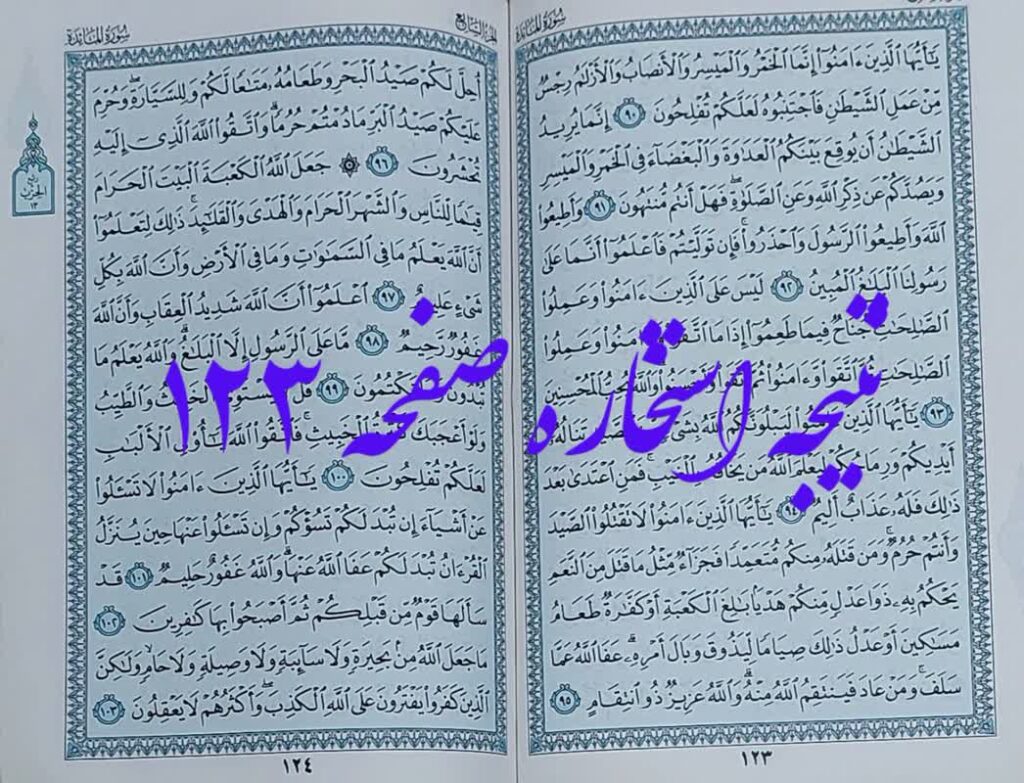 سُورَةُ المَائِدَة
يَٰٓأَيُّهَا ٱلَّذِينَ ءَامَنُوٓا۟ إِنَّمَا ٱلْخَمْرُ وَٱلْمَيْسِرُ وَٱلْأَنصَابُ وَٱلْأَزْلَٰمُ رِجْسٌ
مِّنْ عَمَلِ ٱلشَّيْطَٰنِ فَٱجْتَنِبُوهُ لَعَلَّكُمْ تُفْلِحُونَ ٩٠ إِنَّمَا يُرِيدُ
ٱلشَّيْطَٰنُ أَن يُوقِعَ بَيْنَكُمُ ٱلْعَدَٰوَةَ وَٱلْبَغْضَآءَ فِى ٱلْخَمْرِ وَٱلْمَيْسِرِ
وَيَصُدَّكُمْ عَن ذِكْرِ ٱللَّهِ وَعَنِ ٱلصَّلَوٰةِ فَهَلْ أَنتُم مُّنتَهُونَ ٩١ وَأَطِيعُوا۟
ٱللَّهَ وَأَطِيعُوا۟ ٱلرَّسُولَ وَٱحْذَرُوا۟ فَإِن تَوَلَّيْتُمْ فَٱعْلَمُوٓا۟ أَنَّمَا عَلَىٰ
رَسُولِنَا ٱلْبَلَٰغُ ٱلْمُبِينُ ٩٢ لَيْسَ عَلَى ٱلَّذِينَ ءَامَنُوا۟ وَعَمِلُوا۟
ٱلصَّٰلِحَٰتِ جُنَاحٌ فِيمَا طَعِمُوٓا۟ إِذَا مَا ٱتَّقَوا۟ وَّءَامَنُوا۟ وَعَمِلُوا۟
ٱلصَّٰلِحَٰتِ ثُمَّ ٱتَّقَوا۟ وَّءَامَنُوا۟ ثُمَّ ٱتَّقَوا۟ وَّأَحْسَنُوا۟ وَٱللَّهُ يُحِبُّ ٱلْمُحْسِنِينَ
٩٣ يَٰٓأَيُّهَا ٱلَّذِينَ ءَامَنُوا۟ لَيَبْلُوَنَّكُمُ ٱللَّهُ بِشَىْءٍ مِّنَ ٱلصَّيْدِ تَنَالُهُۥٓ
أَيْدِيكُمْ وَرِمَاحُكُمْ لِيَعْلَمَ ٱللَّهُ مَن يَخَافُهُۥ بِٱلْغَيْبِ فَمَنِ ٱعْتَدَىٰ بَعْدَ
ذَٰلِكَ فَلَهُۥ عَذَابٌ أَلِيمٌ ٩٤ يَٰٓأَيُّهَا ٱلَّذِينَ ءَامَنُوا۟ لَا تَقْتُلُوا۟ ٱلصَّيْدَ
وَأَنتُمْ حُرُمٌ وَمَن قَتَلَهُۥ مِنكُم مُّتَعَمِّدًا فَجَزَآءٌ مِّثْلُ مَا قَتَلَ مِنَ ٱلنَّعَمِ
يَحْكُمُ بِهِۦ ذَوَا عَدْلٍ مِّنكُمْ هَدْيًۢا بَٰلِغَ ٱلْكَعْبَةِ أَوْ كَفَّٰرَةٌ طَعَامُ
مَسَٰكِينَ أَوْ عَدْلُ ذَٰلِكَ صِيَامًا لِّيَذُوقَ وَبَالَ أَمْرِهِۦ عَفَا ٱللَّهُ عَمَّا
سَلَفَ وَمَنْ عَادَ فَيَنتَقِمُ ٱللَّهُ مِنْهُ وَٱللَّهُ عَزِيزٌ ذُو ٱنتِقَامٍ ٩٥
١٢٣
نتیجه استخاره صفحه ١٢٣
الجُزْءُ السَّابِع
سُورَةُ المَائِدَة
أُحِلَّ لَكُمْ صَيْدُ ٱلْبَحْرِ وَطَعَامُهُۥ مَتَٰعًا لَّكُمْ وَلِلسَّيَّارَةِ وَحُرِّمَ
عَلَيْكُمْ صَيْدُ ٱلْبَرِّ مَا دُمْتُمْ حُرُمًا وَٱتَّقُوا۟ ٱللَّهَ ٱلَّذِىٓ إِلَيْهِ
تُحْشَرُونَ ٩٦ ۞ جَعَلَ ٱللَّهُ ٱلْكَعْبَةَ ٱلْبَيْتَ ٱلْحَرَامَ
قِيَٰمًا لِّلنَّاسِ وَٱلشَّهْرَ ٱلْحَرَامَ وَٱلْهَدْىَ وَٱلْقَلَٰٓئِدَ ذَٰلِكَ لِتَعْلَمُوٓا۟
أَنَّ ٱللَّهَ يَعْلَمُ مَا فِى ٱلسَّمَٰوَٰتِ وَمَا فِى ٱلْأَرْضِ وَأَنَّ ٱللَّهَ بِكُلِّ
شَىْءٍ عَلِيمٌ ٩٧ ٱعْلَمُوٓا۟ أَنَّ ٱللَّهَ شَدِيدُ ٱلْعِقَابِ وَأَنَّ ٱللَّهَ
غَفُورٌ رَّحِيمٌ ٩٨ مَّا عَلَى ٱلرَّسُولِ إِلَّا ٱلْبَلَٰغُ وَٱللَّهُ يَعْلَمُ مَا
تُبْدُونَ وَمَا تَكْتُمُونَ ٩٩ قُل لَّا يَسْتَوِى ٱلْخَبِيثُ وَٱلطَّيِّبُ
وَلَوْ أَعْجَبَكَ كَثْرَةُ ٱلْخَبِيثِ فَٱتَّقُوا۟ ٱللَّهَ يَٰٓأُو۟لِى ٱلْأَلْبَٰبِ
لَعَلَّكُمْ تُفْلِحُونَ ١٠٠ يَٰٓأَيُّهَا ٱلَّذِينَ ءَامَنُوا۟ لَا تَسْـَٔلُوا۟
عَنْ أَشْيَآءَ إِن تُبْدَ لَكُمْ تَسُؤْكُمْ وَإِن تَسْـَٔلُوا۟ عَنْهَا حِينَ يُنَزَّلُ
ٱلْقُرْءَانُ تُبْدَ لَكُمْ عَفَا ٱللَّهُ عَنْهَا وَٱللَّهُ غَفُورٌ حَلِيمٌ ١٠١ قَدْ
سَأَلَهَا قَوْمٌ مِّن قَبْلِكُمْ ثُمَّ أَصْبَحُوا۟ بِهَا كَٰفِرِينَ ١٠٢
مَا جَعَلَ ٱللَّهُ مِنۢ بَحِيرَةٍ وَلَا سَآئِبَةٍ وَلَا وَصِيلَةٍ وَلَا حَامٍ وَلَٰكِنَّ
ٱلَّذِينَ كَفَرُوا۟ يَفْتَرُونَ عَلَى ٱللَّهِ ٱلْكَذِبَ وَأَكْثَرُهُمْ لَا يَعْقِلُونَ ١٠٣
١٢٤
الحزب
١٣